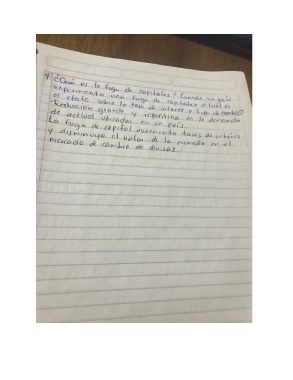 ¿Qué es la fuga de capitales? Cuando un país
experimenta una fuga de capitales ¿Cuál es
el efecto sobre la tasa de interés y tipo de cambio?
Reducción grande y repentina en la demanda
de activos ubicados en un país.
La fuga de capital incrementa tasas de interés
y disminuye el valor de la moneda en el
mercado de cambio de divisas.